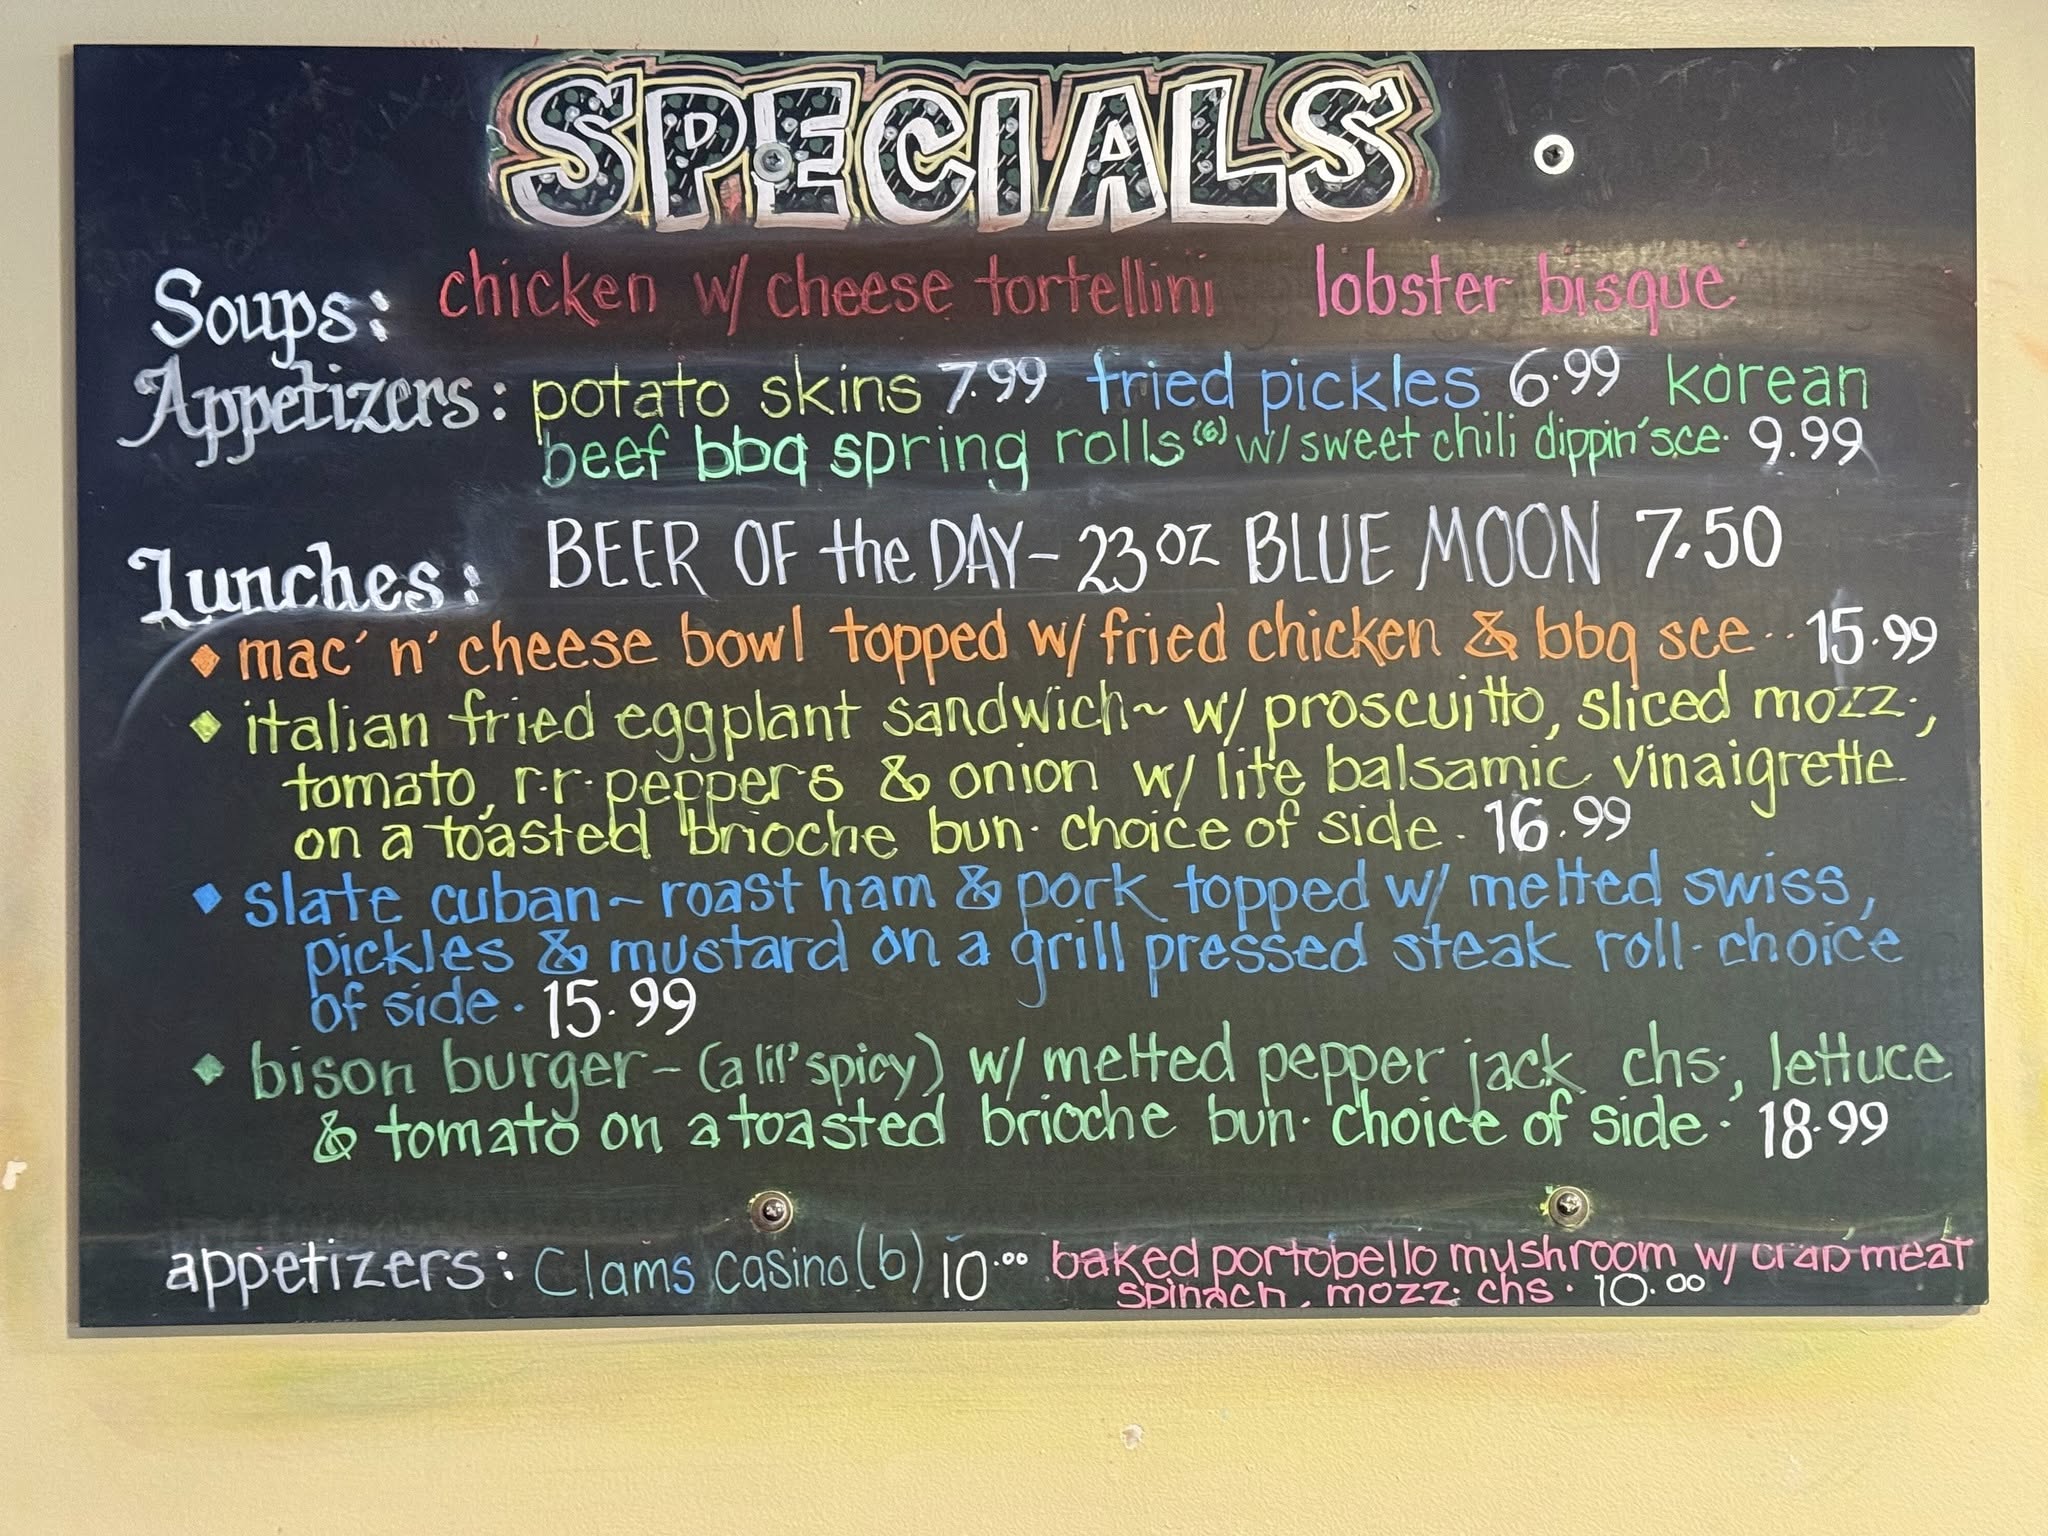 SPECIALS
Soups: chicken w/ cheese tortellini lobster bisque
Appetizers: potato skins 7.99 fried pickles 6.99 korean
beef bbq spring rolls (6) w/ sweet chili dippin' sce. 9.99
BEER OF the DAY - 23 oz BLUE MOON 7.50
Lunches:
◆ mac' n' cheese bowl topped w/ fried chicken & bbq sce .. 15.99
◆ italian fried eggplant sandwich ~ w/ proscuitto, sliced mozz.,
tomato, r.r. peppers & onion w/ lite balsamic vinaigrette
on a toasted brioche bun. choice of side. 16.99
◆ slate cuban ~ roast ham & pork topped w/ melted swiss,
pickles & mustard on a grill pressed steak roll. choice
of side. 15.99
◆ bison burger - (a lil' spicy) w/ melted pepper jack chs., lettuce
& tomato on a toasted brioche bun. choice of side. 18.99
appetizers: Clams casino (6) 10.00 baked portobello mushroom w/ crab meat
spinach, mozz. chs. 10.00